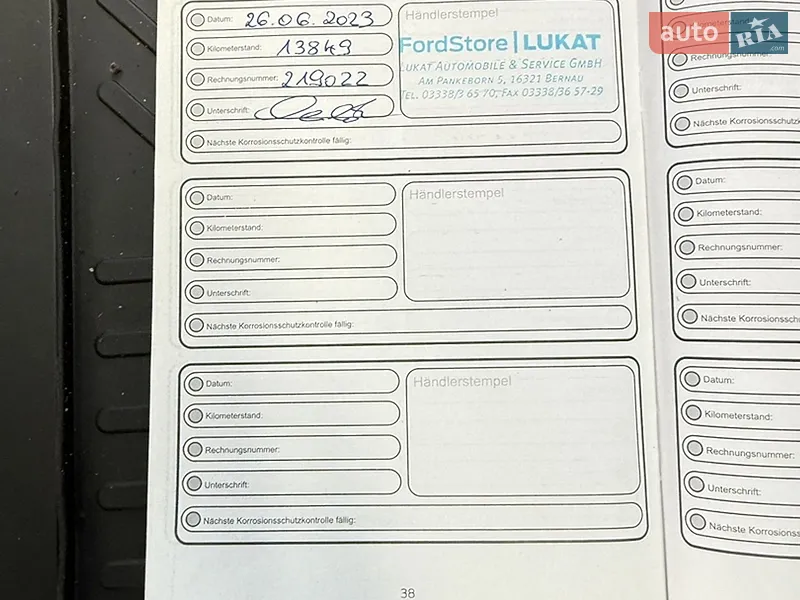 Datum: 26.06.2023
Händlerstempel
Kilometerstand: 13849
FordStore | LUKAT
Rechnungsnummer: 219022
LUKAT AUTOMOBILE & SERVICE GMBH
AM PANKEBORN 5, 16321 BERNAU
TEL. 03338/3 65 70, FAX 03338/36 57-29
Unterschrift:
Nächste Korrosionsschutzkontrolle fällig:
Datum:
Händlerstempel
Kilometerstand:
Rechnungsnummer:
Unterschrift:
Nächste Korrosionsschutzkontrolle fällig:
Datum:
Händlerstempel
Kilometerstand:
Rechnungsnummer:
Unterschrift:
Nächste Korrosionsschutzkontrolle fällig:
38
auto RIA .com
Kilometerstand:
Rechnungsnummer:
Unterschrift:
Nächste Korrosionsschutzk
Datum:
Kilometerstand:
Rechnungsnummer:
Unterschrift:
Nächste Korrosionsschu
Datum:
Kilometerstand:
Rechnungsnummer:
Unterschrift:
Nächste Korrosionss